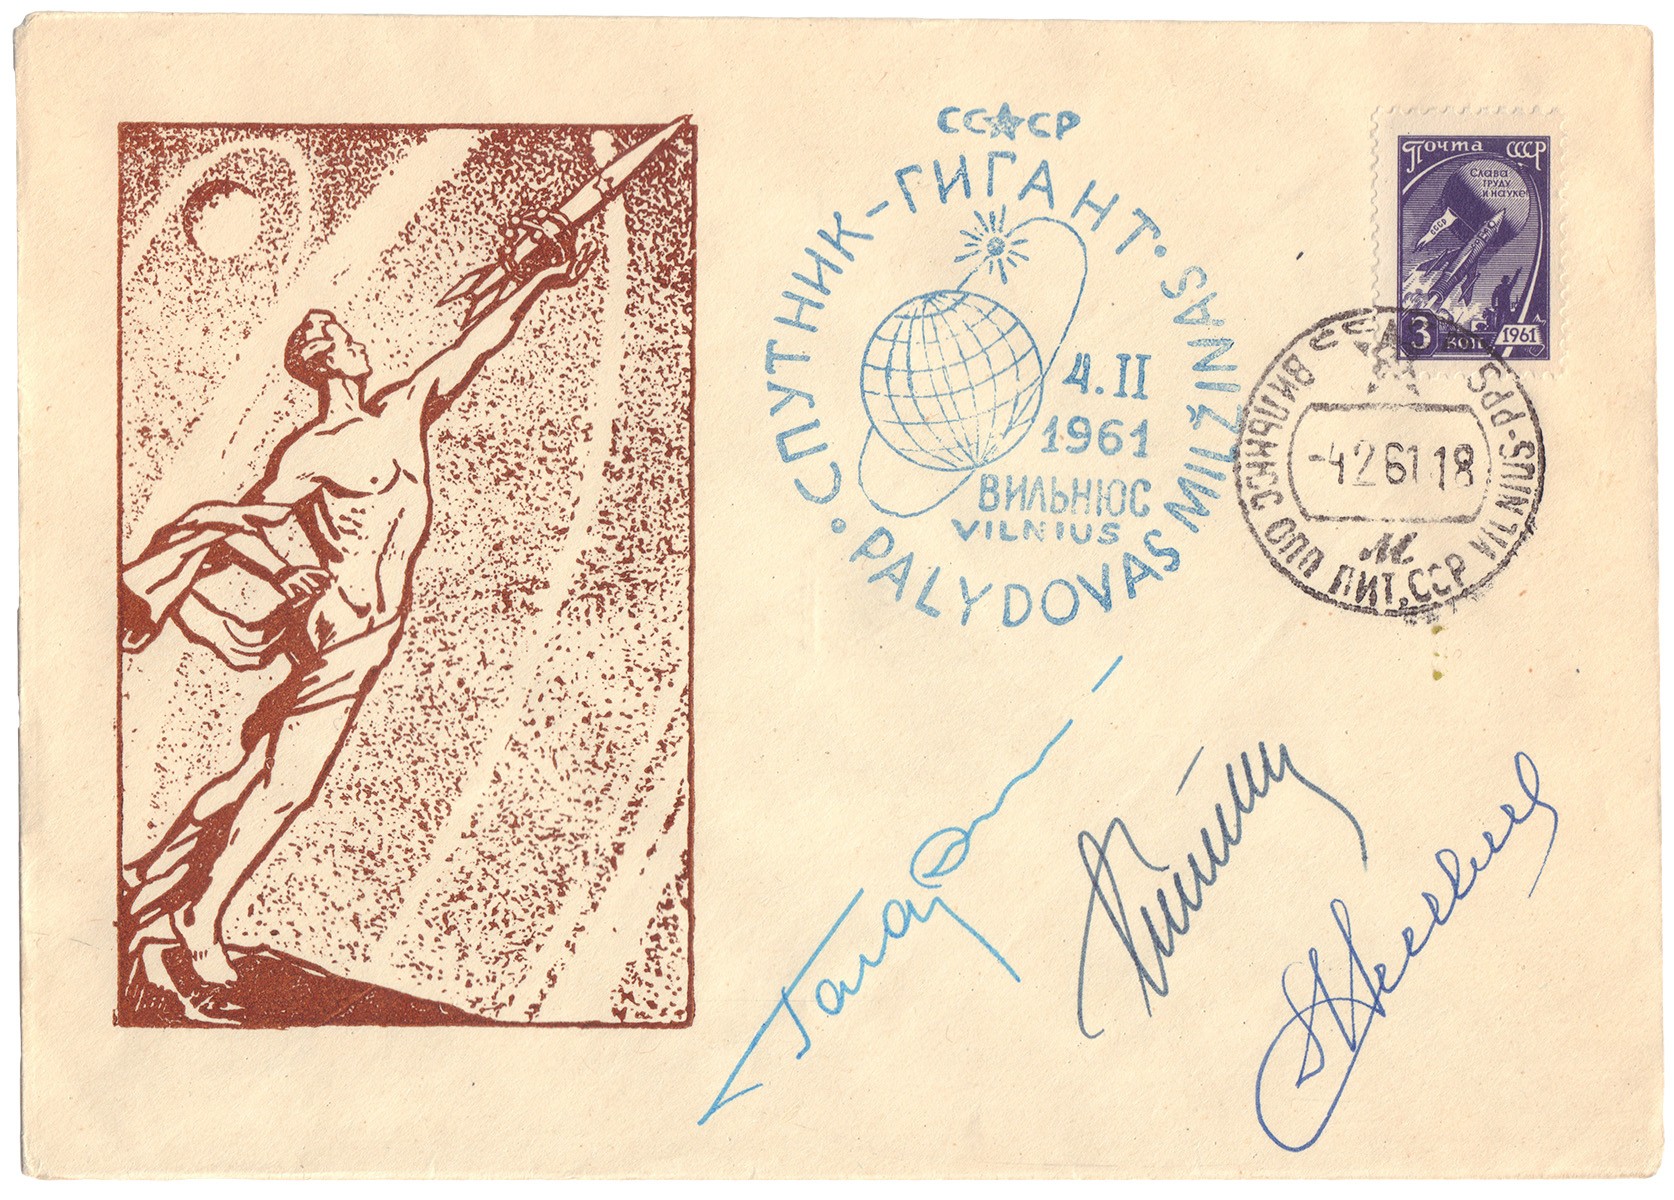 СССР
СПУТНИК-ГИГАНТ
PALYDOVAS MILŽINAS
4.II
1961
ВИЛЬНЮС
VILNIUS
Почта СССР
Слава
труду
и науке
СССР
3 коп
1961
ВИЛЬНЮС
ЛИТ. ССР VILNIUS
-4.2.61.18
М
Гагарин
Титов